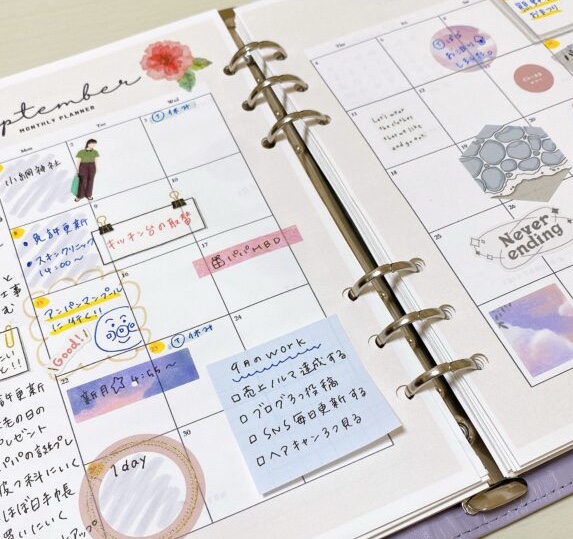 ptember
MONTHLY PLANNER
Mon
Tue
Wed
小網神社
休み
• 免許更新
• スキンクリニック
14:00〜
キッチン台の取替
パパHBD
アンパンマンプール
に行く!!
Good!!
休み
新月☆ 4:55〜
1 day
9月のwork
□ 売上ノルマ達成する
□ ブログ3つ投稿
□ SNS毎日更新する
□ ヘアキャン3つ見る
10
16
17
22
24
30
許更新
もの日の
プレゼント
パパの誕プレ
皮フ科にいく
ほぼ日手帳
買いにいく
Let's wear
the clothes
that we like
and go out
Never
ending